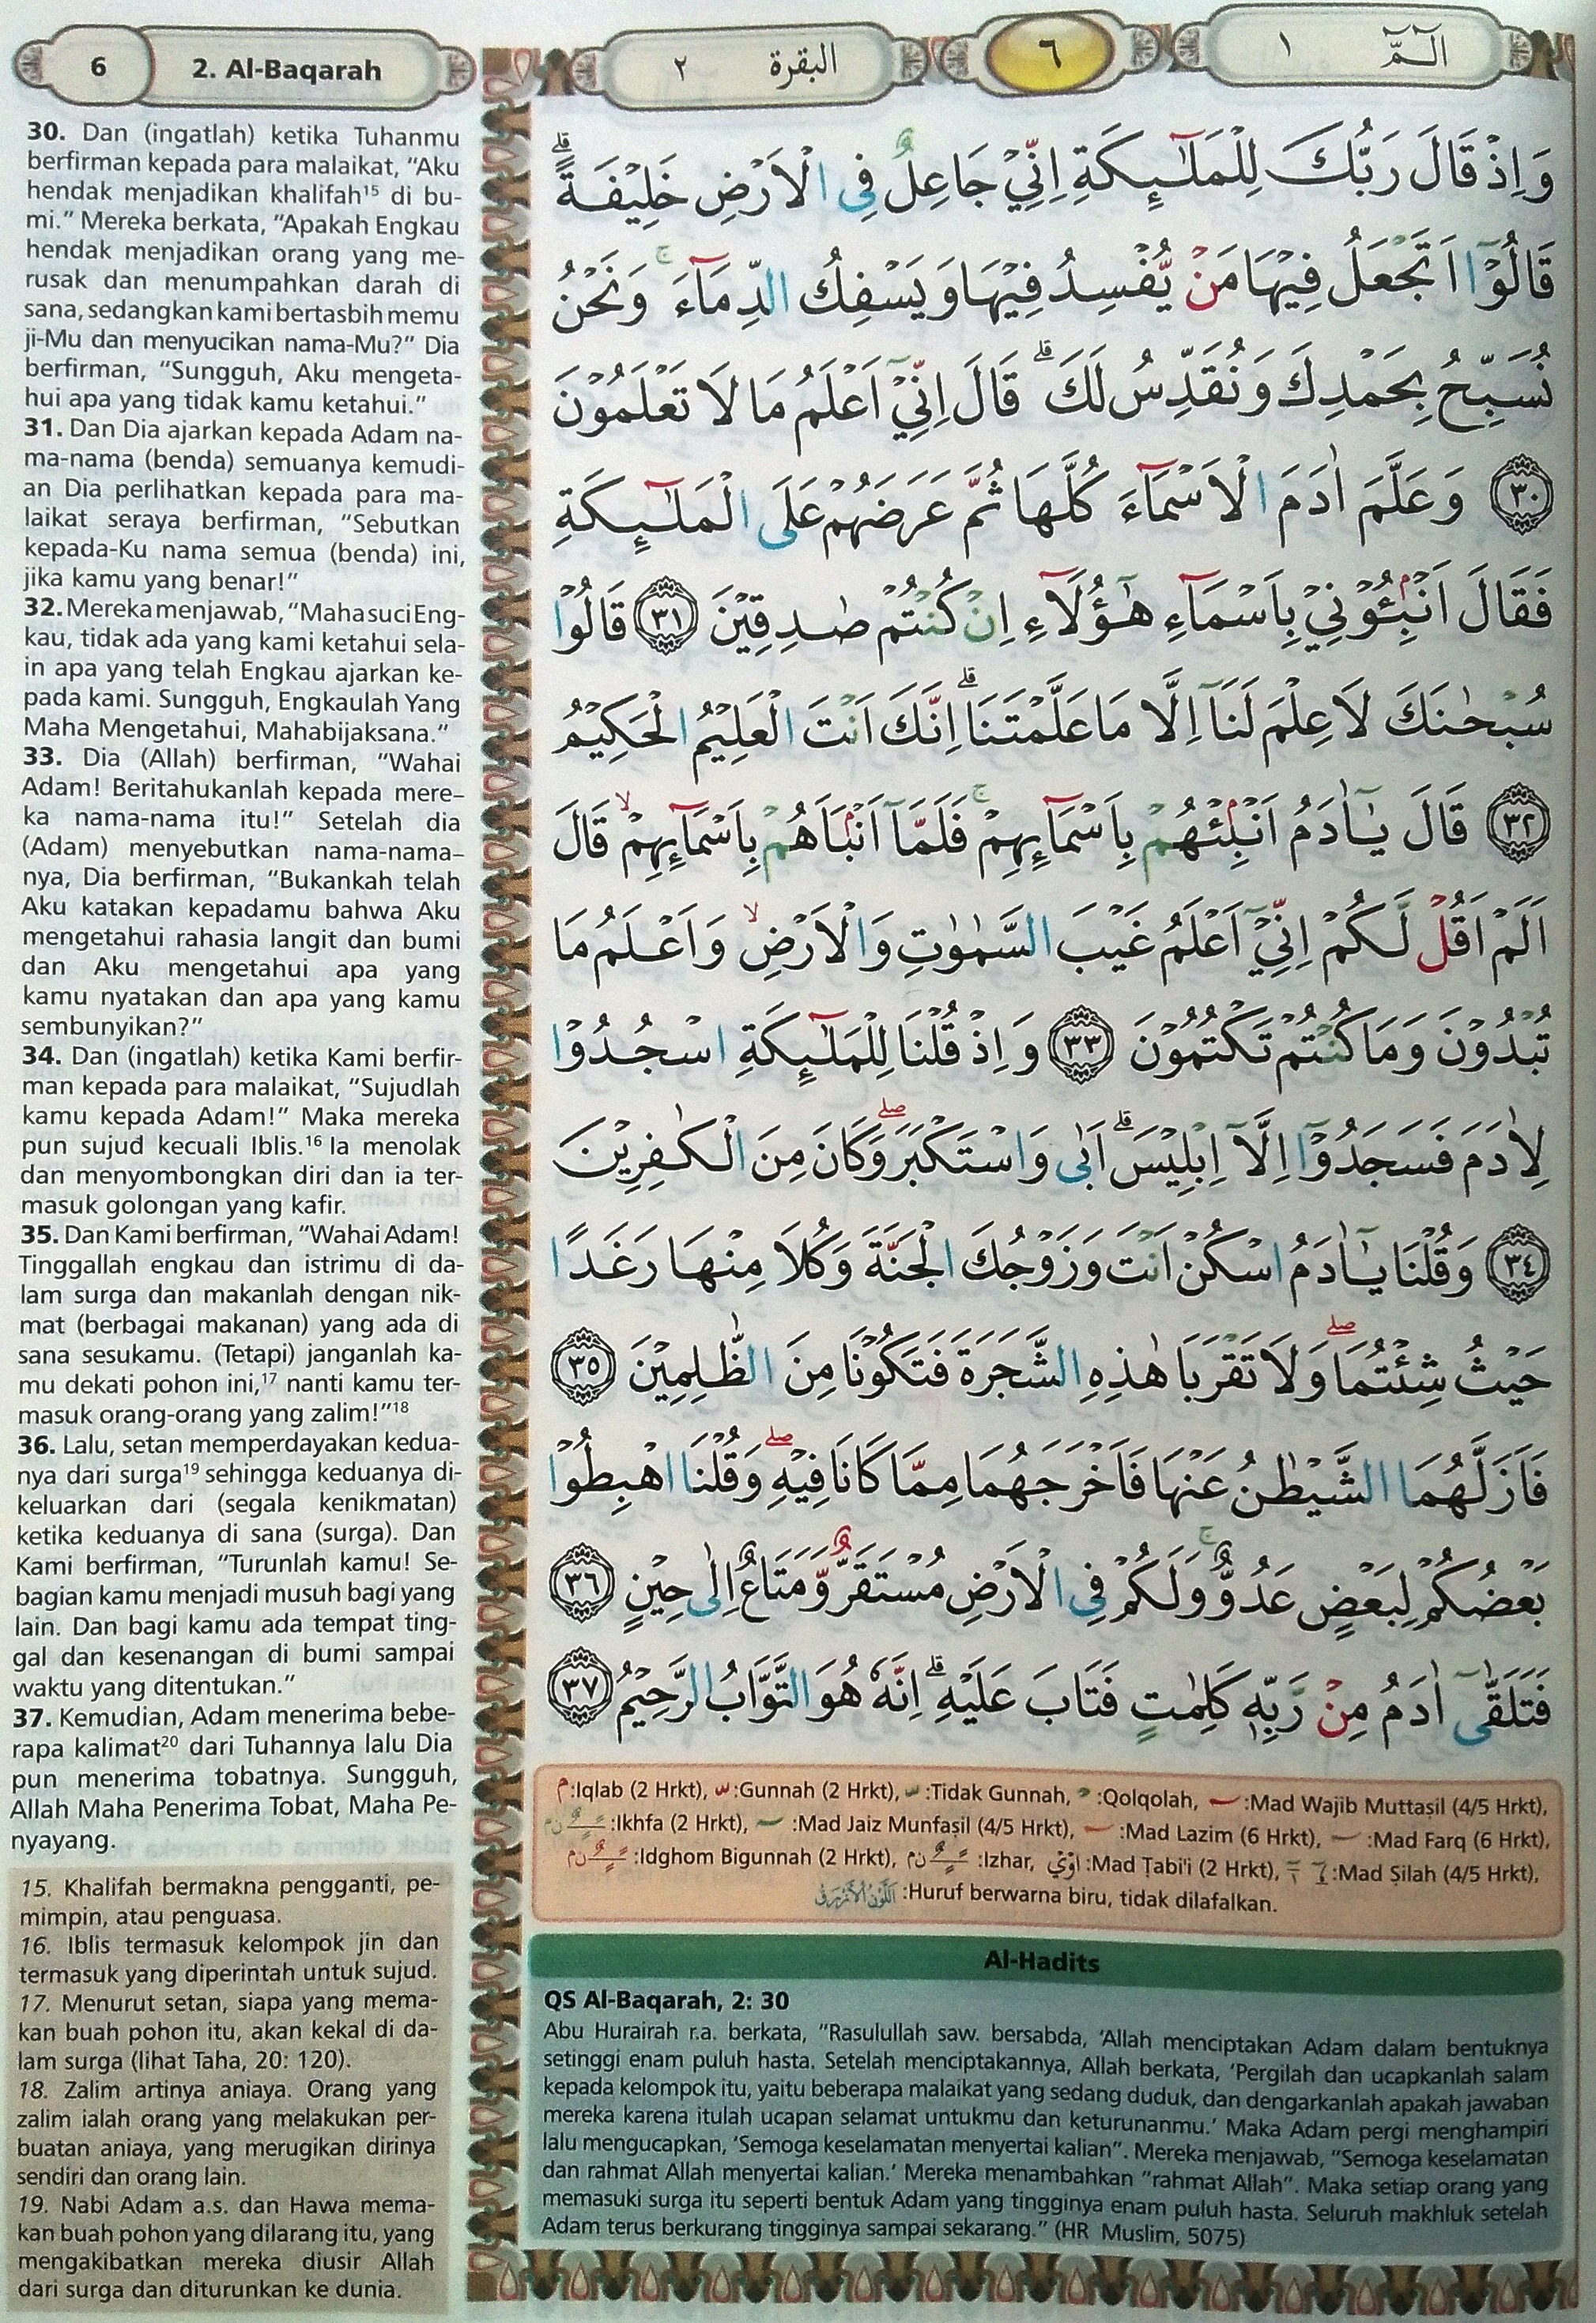 6
2. Al-Baqarah
البقرة ٢
٦
الٓـمّٓ ١
30. Dan (ingatlah) ketika Tuhanmu
berfirman kepada para malaikat, “Aku
hendak menjadikan khalifah¹⁵ di bu-
mi.” Mereka berkata, “Apakah Engkau
hendak menjadikan orang yang me-
rusak dan menumpahkan darah di
sana, sedangkan kami bertasbih memu
ji-Mu dan menyucikan nama-Mu?” Dia
berfirman, “Sungguh, Aku mengeta-
hui apa yang tidak kamu ketahui.”
31. Dan Dia ajarkan kepada Adam na-
ma-nama (benda) semuanya kemudi-
an Dia perlihatkan kepada para ma-
laikat seraya berfirman, “Sebutkan
kepada-Ku nama semua (benda) ini,
jika kamu yang benar!”
32. Mereka menjawab, “Mahasuci Eng-
kau, tidak ada yang kami ketahui sela-
in apa yang telah Engkau ajarkan ke-
pada kami. Sungguh, Engkaulah Yang
Maha Mengetahui, Mahabijaksana.”
33. Dia (Allah) berfirman, “Wahai
Adam! Beritahukanlah kepada mere-
ka nama-nama itu!” Setelah dia
(Adam) menyebutkan nama-nama-
nya, Dia berfirman, “Bukankah telah
Aku katakan kepadamu bahwa Aku
mengetahui rahasia langit dan bumi
dan Aku mengetahui apa yang
kamu nyatakan dan apa yang kamu
sembunyikan?”
34. Dan (ingatlah) ketika Kami berfir-
man kepada para malaikat, “Sujudlah
kamu kepada Adam!” Maka mereka
pun sujud kecuali Iblis.¹⁶ Ia menolak
dan menyombongkan diri dan ia ter-
masuk golongan yang kafir.
35. Dan Kami berfirman, “Wahai Adam!
Tinggallah engkau dan istrimu di da-
lam surga dan makanlah dengan nik-
mat (berbagai makanan) yang ada di
sana sesukamu. (Tetapi) janganlah ka-
mu dekati pohon ini,¹⁷ nanti kamu ter-
masuk orang-orang yang zalim!”¹⁸
36. Lalu, setan memperdayakan kedua-
nya dari surga¹⁹ sehingga keduanya di-
keluarkan dari (segala kenikmatan)
ketika keduanya di sana (surga). Dan
Kami berfirman, “Turunlah kamu! Se-
bagian kamu menjadi musuh bagi yang
lain. Dan bagi kamu ada tempat ting-
gal dan kesenangan di bumi sampai
waktu yang ditentukan.”
37. Kemudian, Adam menerima bebe-
rapa kalimat²⁰ dari Tuhannya lalu Dia
pun menerima tobatnya. Sungguh,
Allah Maha Penerima Tobat, Maha Pe-
nyayang.
15. Khalifah bermakna pengganti, pe-
mimpin, atau penguasa.
16. Iblis termasuk kelompok jin dan
termasuk yang diperintah untuk sujud.
17. Menurut setan, siapa yang mema-
kan buah pohon itu, akan kekal di da-
lam surga (lihat Taha, 20: 120).
18. Zalim artinya aniaya. Orang yang
zalim ialah orang yang melakukan per-
buatan aniaya, yang merugikan dirinya
sendiri dan orang lain.
19. Nabi Adam a.s. dan Hawa mema-
kan buah pohon yang dilarang itu, yang
mengakibatkan mereka diusir Allah
dari surga dan diturunkan ke dunia.
وَاِذْ قَالَ رَبُّكَ لِلْمَلٰۤىِٕكَةِ اِنِّيْ جَاعِلٌ فِى الْاَرْضِ خَلِيْفَةً ۗ
قَالُوْٓا اَتَجْعَلُ فِيْهَا مَنْ يُّفْسِدُ فِيْهَا وَيَسْفِكُ الدِّمَاۤءَ ۚ وَنَحْنُ
نُسَبِّحُ بِحَمْدِكَ وَنُقَدِّسُ لَكَ ۗ قَالَ اِنِّيْٓ اَعْلَمُ مَا لَا تَعْلَمُوْنَ
٣٠ وَعَلَّمَ اٰدَمَ الْاَسْمَاۤءَ كُلَّهَا ثُمَّ عَرَضَهُمْ عَلَى الْمَلٰۤىِٕكَةِ
فَقَالَ اَنْۢبِـُٔوْنِيْ بِاَسْمَاۤءِ هٰٓؤُلَاۤءِ اِنْ كُنْتُمْ صٰدِقِيْنَ ٣١ قَالُوْا
سُبْحٰنَكَ لَا عِلْمَ لَنَآ اِلَّا مَا عَلَّمْتَنَا ۗ اِنَّكَ اَنْتَ الْعَلِيْمُ الْحَكِيْمُ
٣٢ قَالَ يٰٓاٰدَمُ اَنْۢبِئْهُمْ بِاَسْمَاۤىِٕهِمْ ۚ فَلَمَّآ اَنْۢبَاَهُمْ بِاَسْمَاۤىِٕهِمْ ۙ قَالَ
اَلَمْ اَقُلْ لَّكُمْ اِنِّيْٓ اَعْلَمُ غَيْبَ السَّمٰوٰتِ وَالْاَرْضِ ۙ وَاَعْلَمُ مَا
تُبْدُوْنَ وَمَا كُنْتُمْ تَكْتُمُوْنَ ٣٣ وَاِذْ قُلْنَا لِلْمَلٰۤىِٕكَةِ اسْجُدُوْا
لِاٰدَمَ فَسَجَدُوْٓا اِلَّآ اِبْلِيْسَ ۗ اَبٰى وَاسْتَكْبَرَ ۖ وَكَانَ مِنَ الْكٰفِرِيْنَ
٣٤ وَقُلْنَا يٰٓاٰدَمُ اسْكُنْ اَنْتَ وَزَوْجُكَ الْجَنَّةَ وَكُلَا مِنْهَا رَغَدًا
حَيْثُ شِئْتُمَا ۖ وَلَا تَقْرَبَا هٰذِهِ الشَّجَرَةَ فَتَكُوْنَا مِنَ الظّٰلِمِيْنَ ٣٥
فَاَزَلَّهُمَا الشَّيْطٰنُ عَنْهَا فَاَخْرَجَهُمَا مِمَّا كَانَا فِيْهِ ۖ وَقُلْنَا اهْبِطُوْا
بَعْضُكُمْ لِبَعْضٍ عَدُوٌّ ۚ وَلَكُمْ فِى الْاَرْضِ مُسْتَقَرٌّ وَّمَتَاعٌ اِلٰى حِيْنٍ ٣٦
فَتَلَقّٰٓى اٰدَمُ مِنْ رَّبِّهٖ كَلِمٰتٍ فَتَابَ عَلَيْهِ ۗ اِنَّهٗ هُوَ التَّوَّابُ الرَّحِيْمُ ٣٧
م:Iqlab (2 Hrkt), :Gunnah (2 Hrkt), :Tidak Gunnah, :Qolqolah, :Mad Wajib Muttaṣil (4/5 Hrkt),
:Ikhfa (2 Hrkt), :Mad Jaiz Munfaṣil (4/5 Hrkt), :Mad Lazim (6 Hrkt), :Mad Farq (6 Hrkt),
:Idghom Bigunnah (2 Hrkt), :Izhar, :Mad Ṭabi'i (2 Hrkt), :Mad Ṣilah (4/5 Hrkt),
:Huruf berwarna biru, tidak dilafalkan.
Al-Hadits
QS Al-Baqarah, 2: 30
Abu Hurairah r.a. berkata, “Rasulullah saw. bersabda, ‘Allah menciptakan Adam dalam bentuknya
setinggi enam puluh hasta. Setelah menciptakannya, Allah berkata, ‘Pergilah dan ucapkanlah salam
kepada kelompok itu, yaitu beberapa malaikat yang sedang duduk, dan dengarkanlah apakah jawaban
mereka karena itulah ucapan selamat untukmu dan keturunanmu.’ Maka Adam pergi menghampiri
lalu mengucapkan, ‘Semoga keselamatan menyertai kalian”. Mereka menjawab, “Semoga keselamatan
dan rahmat Allah menyertai kalian.’ Mereka menambahkan “rahmat Allah”. Maka setiap orang yang
memasuki surga itu seperti bentuk Adam yang tingginya enam puluh hasta. Seluruh makhluk setelah
Adam terus berkurang tingginya sampai sekarang.” (HR Muslim, 5075)